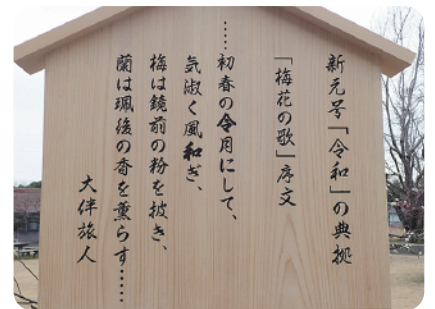 新元号「令和」の典拠
「梅花の歌」序文
……初春の令月にして、
気淑く風和ぎ、
梅は鏡前の粉を披き、
蘭は珮後の香を薫らす……
大伴旅人